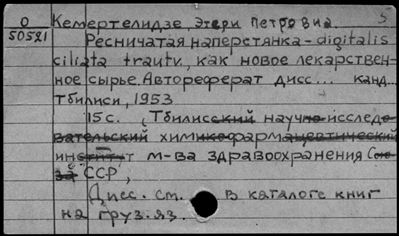 5
О Кемертелидзе, Этери Петровна.
50521 Ресничатая наперстянка - digitalis
ciliata trautv., как новое лекарствен-
ное сырье. Автореферат дисс... канд...
Тбилиси, 1953
15 с., Тбилисский научно-исследо-
вательский химикофармацевтический
институт м-ва здравоохранения Союза
ССР,
Дисс. см. в каталоге книг
на груз. яз.